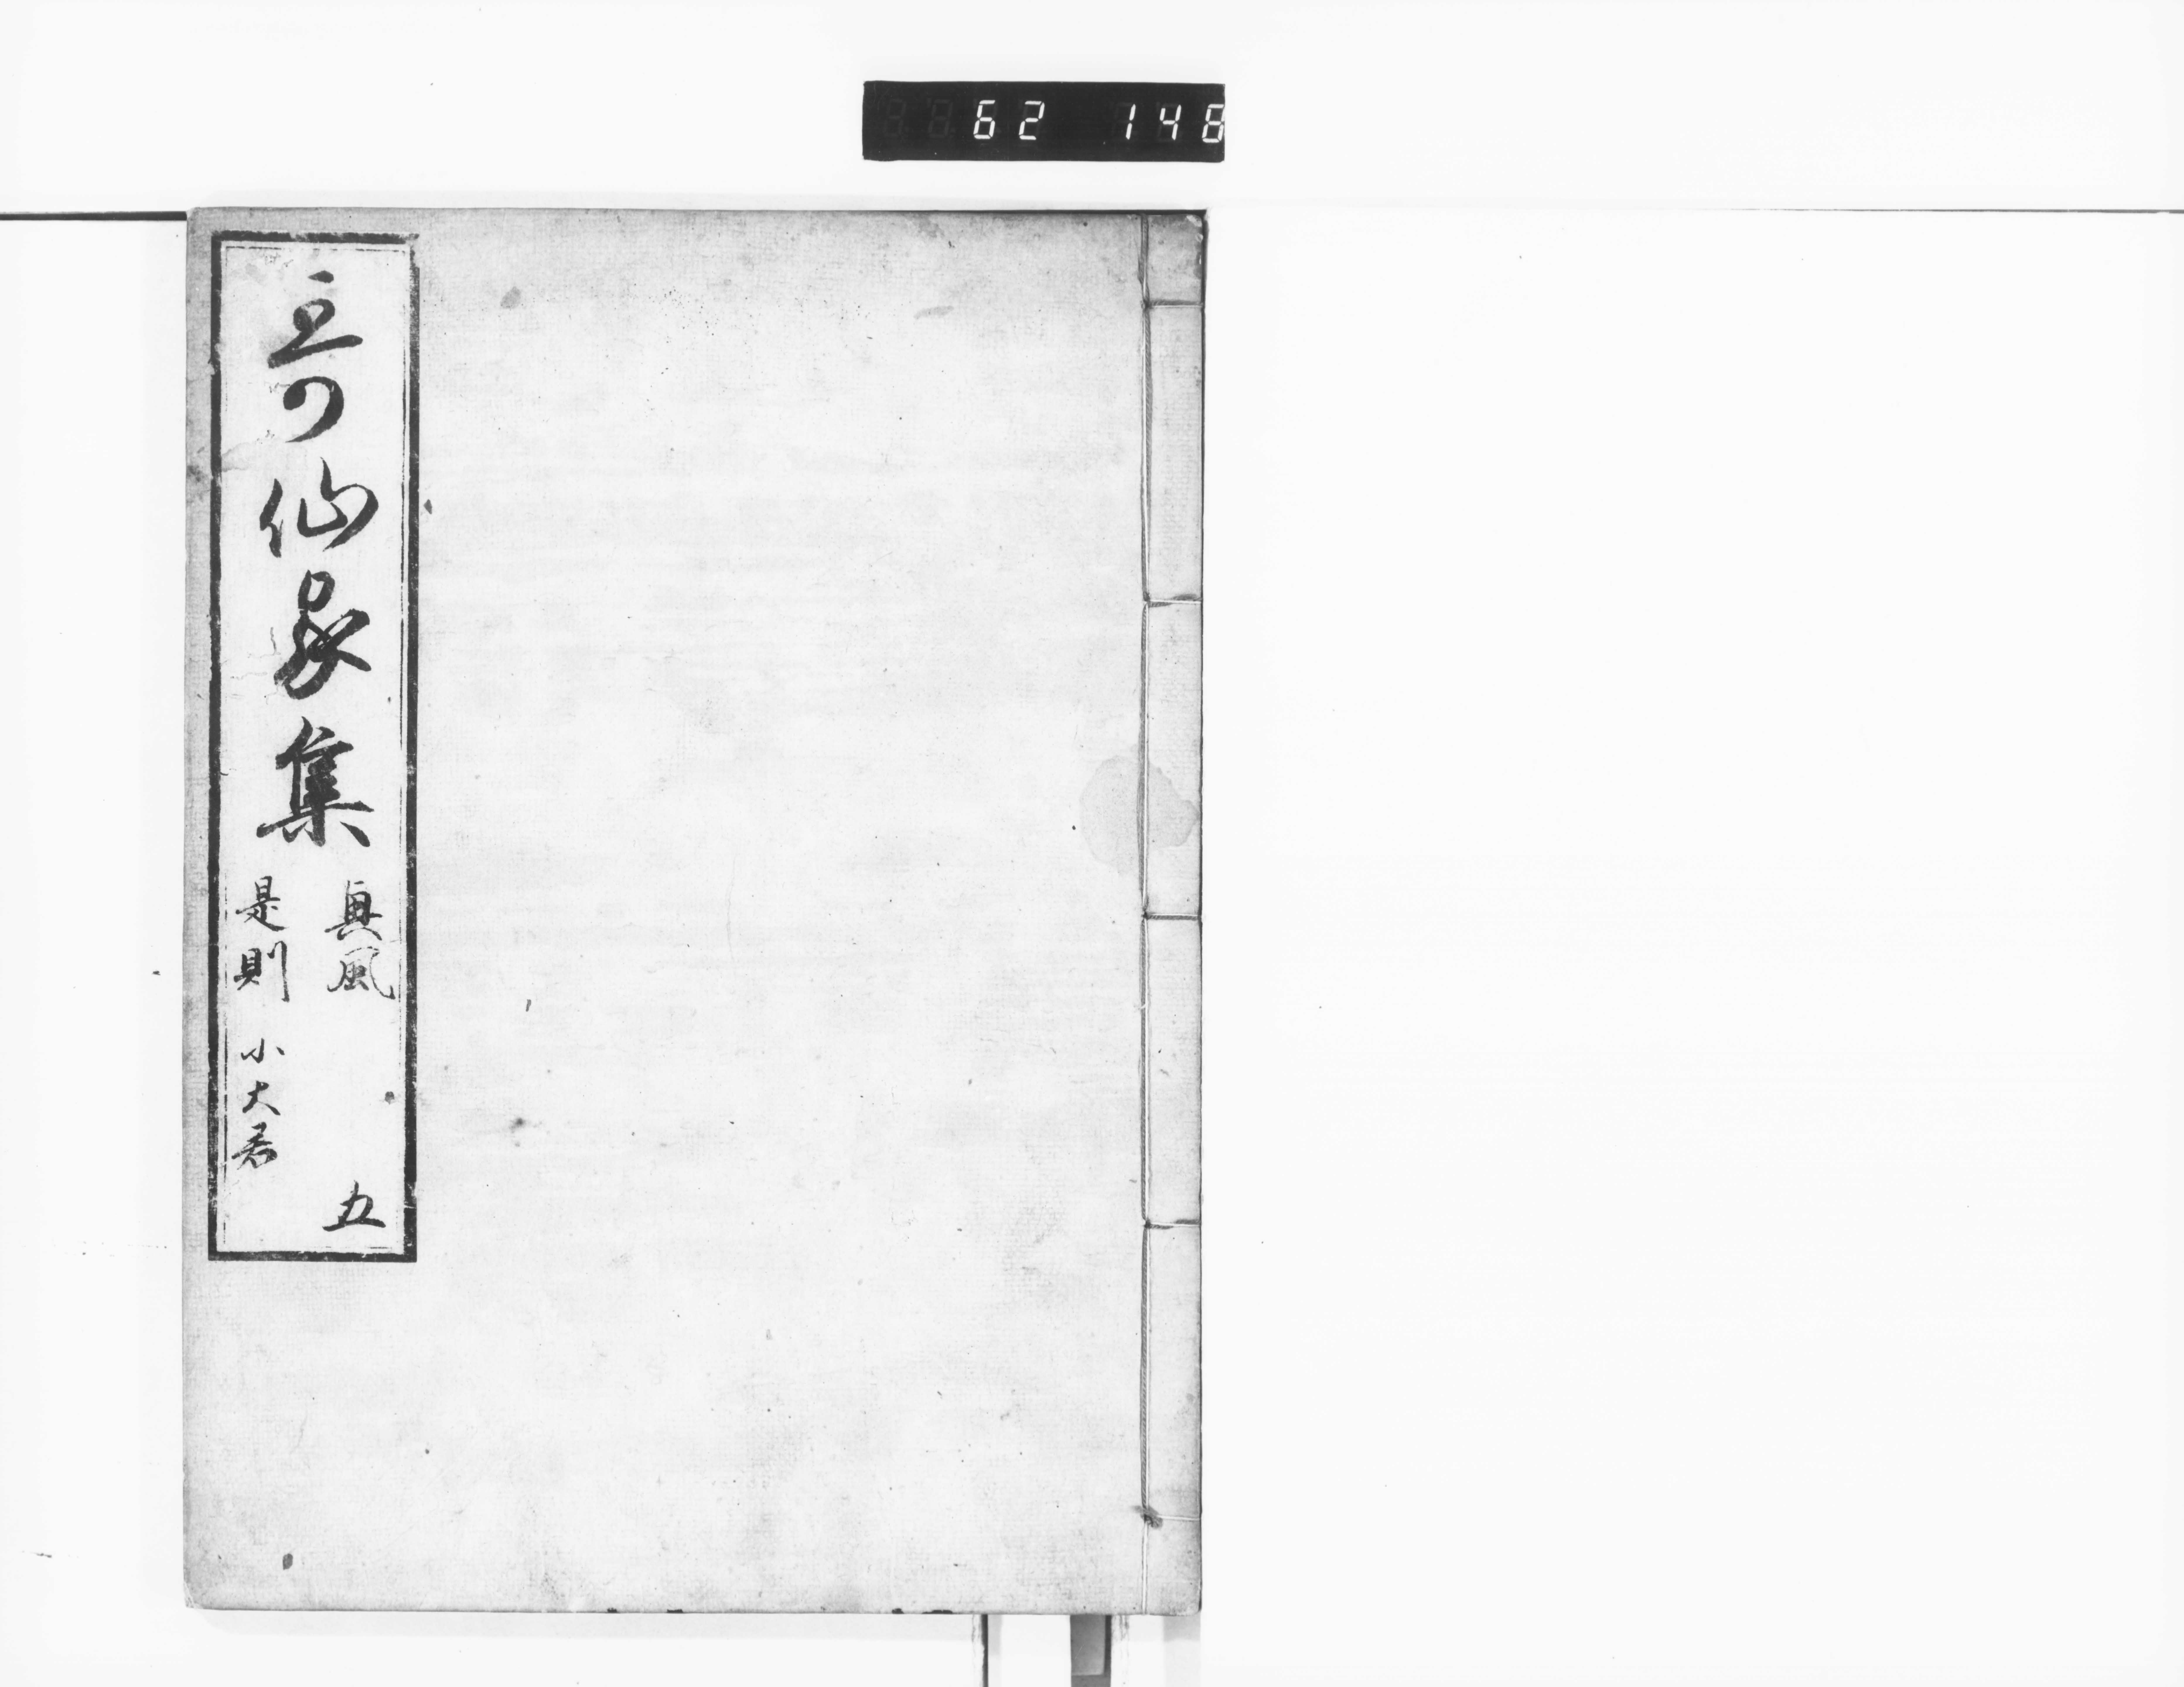 62 148
哥仙家集
興風
是則 小大君
五